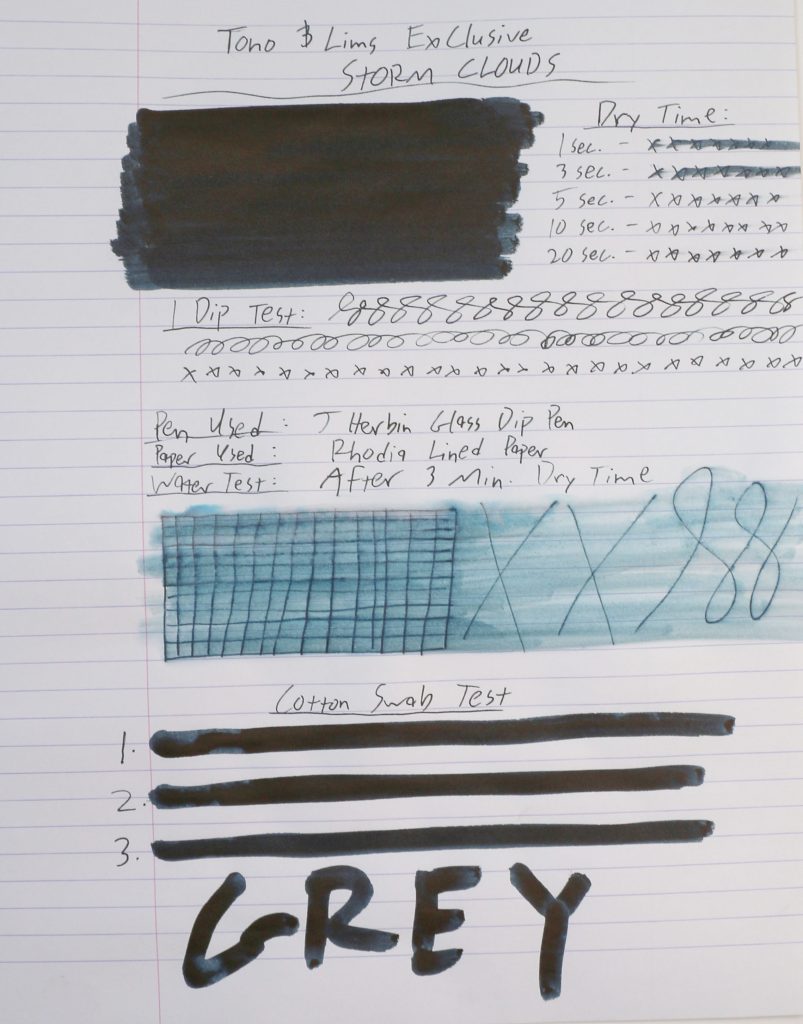 Tono & Lims Exclusive
STORM CLOUDS
Dry Time:
1 sec. - x x x x x x x x
3 sec. - x x x x x x x x
5 sec. - x x x x x x x
10 sec. - x x x x x x x x
20 sec. - x x x x x x x
1 Dip Test:
Pen Used: J Herbin Glass Dip Pen
Paper Used: Rhodia Lined Paper
Water Test: After 3 Min. Dry Time
X X 8 8
Cotton Swab Test
1.
2.
3.
GREY